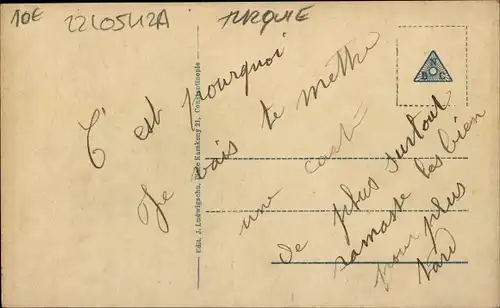 10E 22L05412A TURQUIE
C'est pourquoi
Je vais te mettre
une carte
de plus surtout
ramasse les bien
pour plus
tard
N
B C
Edit. J. Ludwigsohn, Karakeuy 21, Constantinople